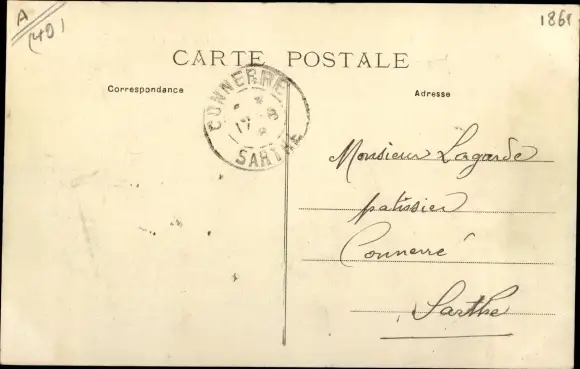 A
(40)
CARTE POSTALE
Correspondance
Adresse
CONNERRE
17
SARTHE
Monsieur Lagarde
patissier
Connerré
Sarthe